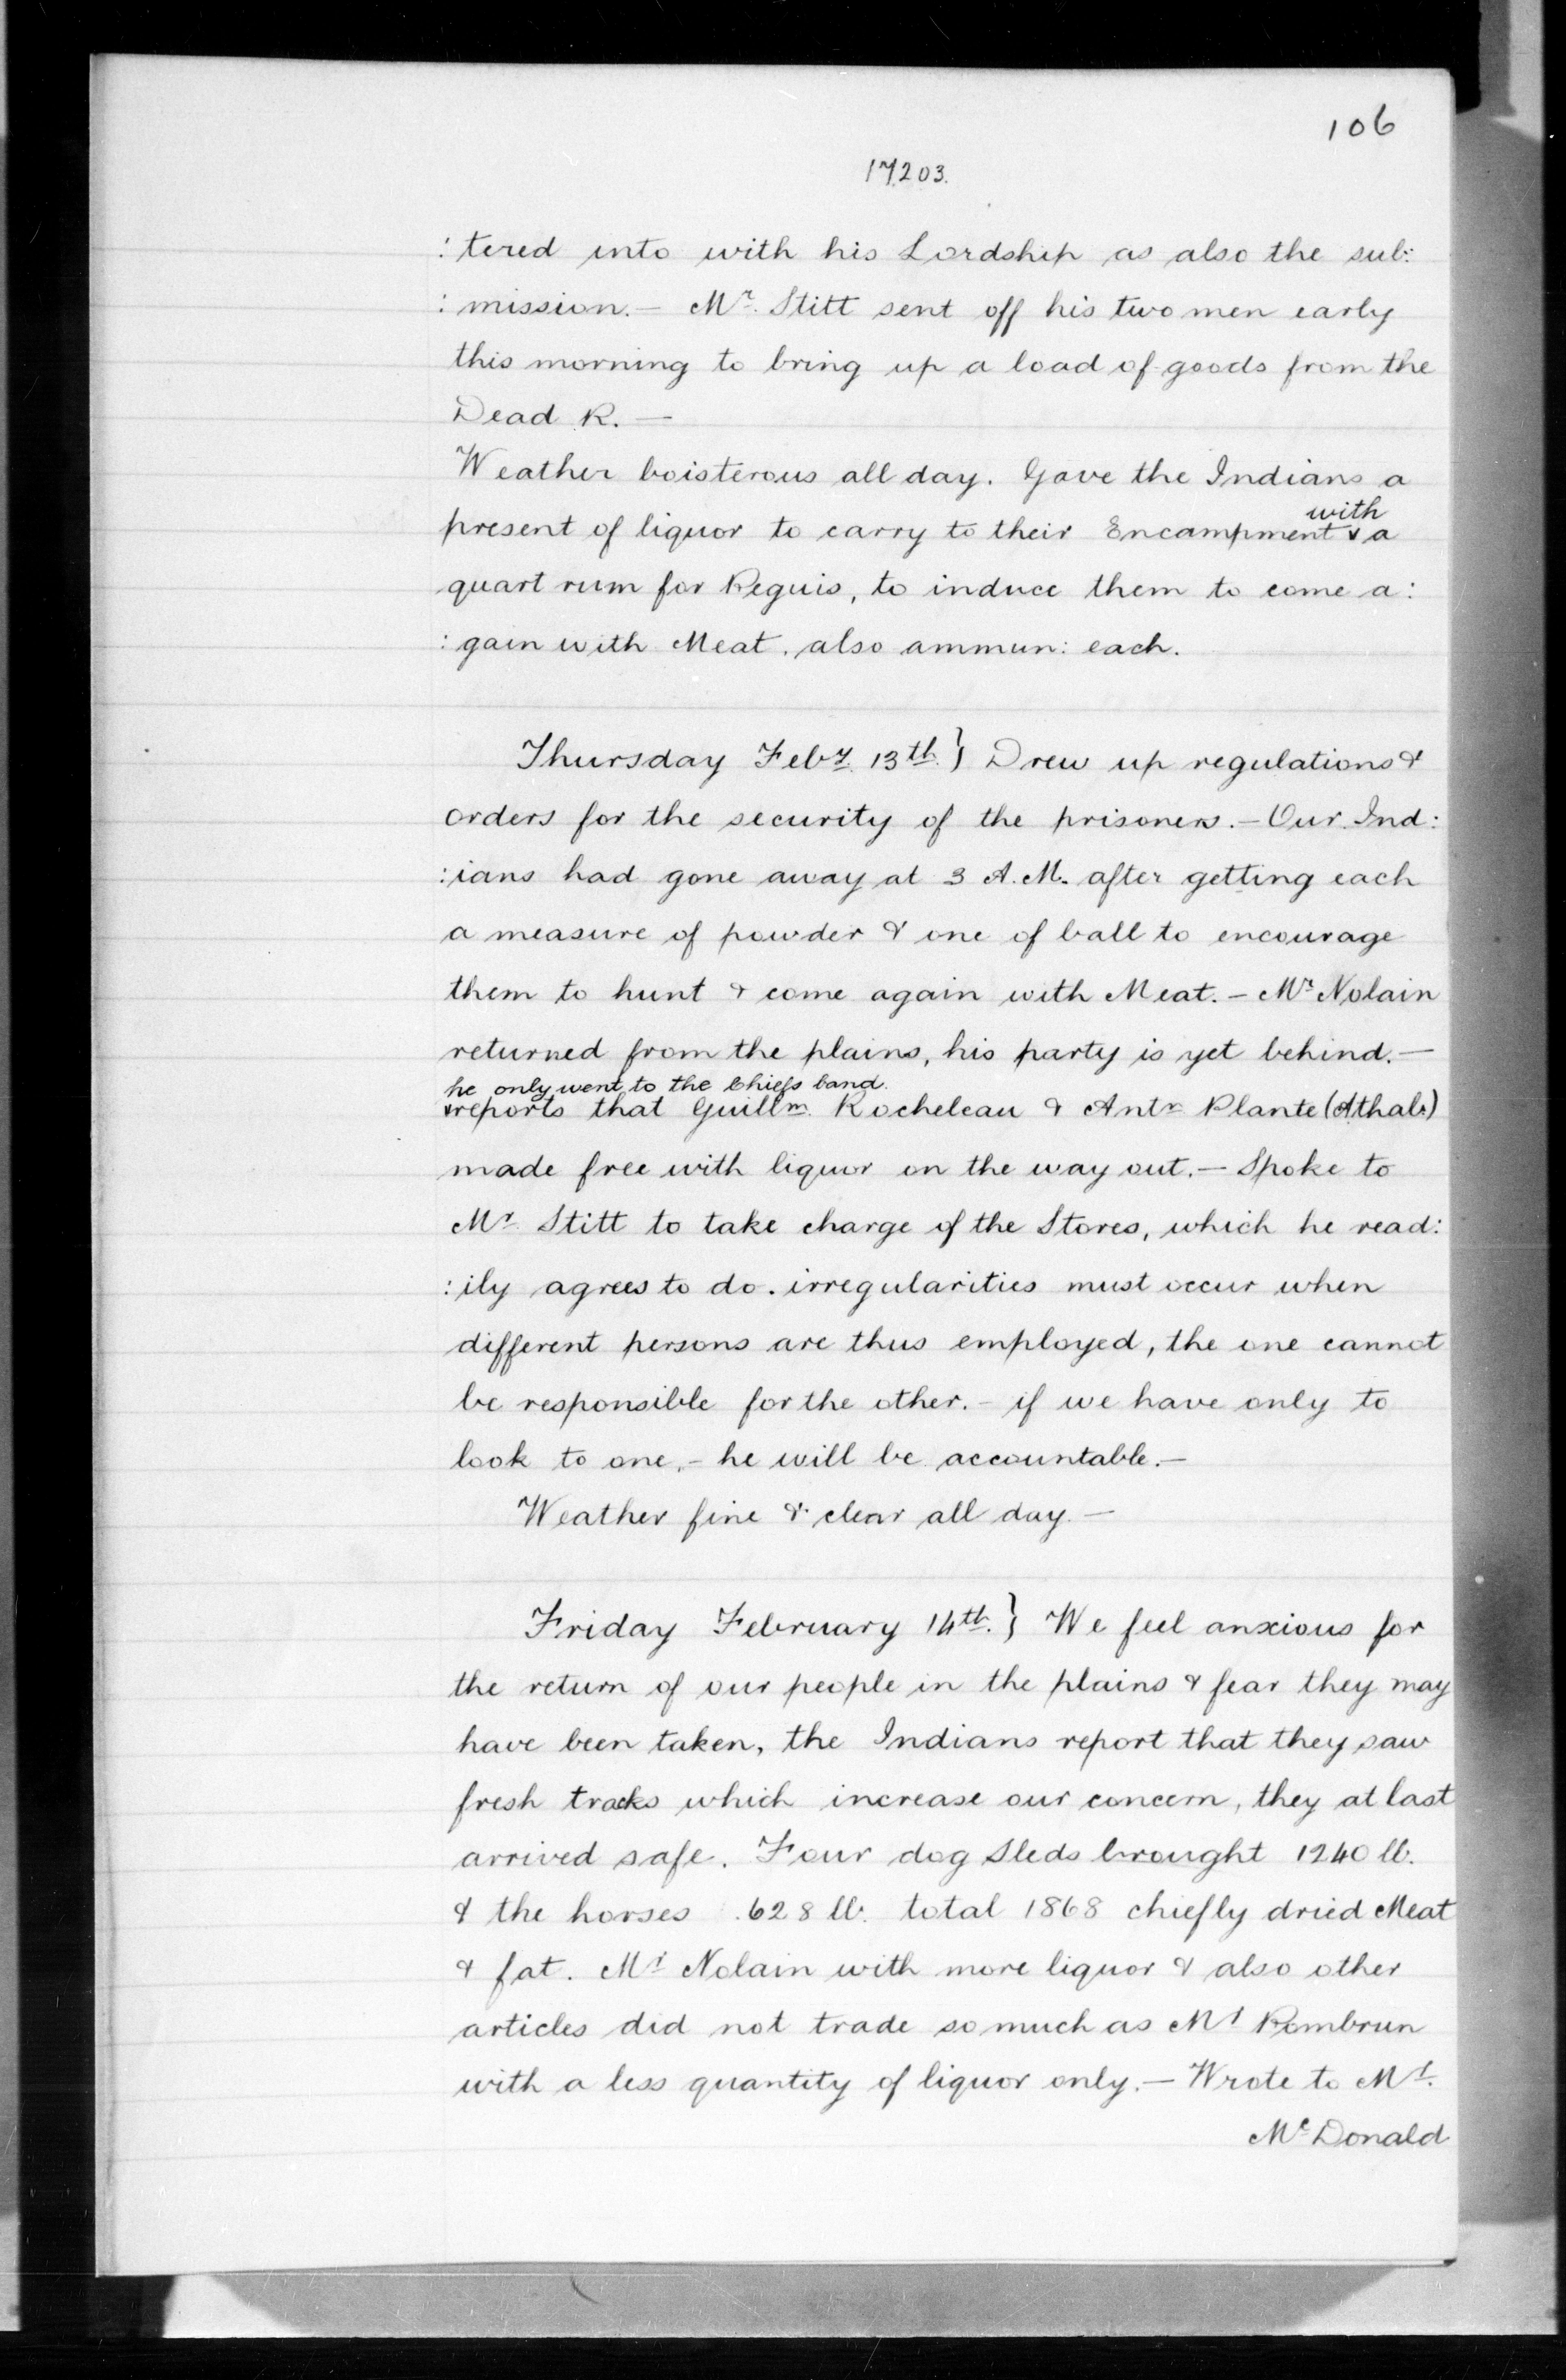 106
17203.
: tered into with his Lordship as also the sub:
: mission. — Mr. Stitt sent off his two men early
this morning to bring up a load of goods from the
Dead R. —
Weather boisterous all day. Gave the Indians a
with
present of liquor to carry to their Encampment v a
quart rum for Peguis, to induce them to come a:
: gain with Meat. also ammun: each.
Thursday Feby. 13th.} Drew up regulations &
orders for the security of the prisoners. — Our Ind:
: ians had gone away at 3 A.M. after getting each
a measure of powder & one of ball to encourage
them to hunt & come again with Meat. — Mr. Nolain
returned from the plains, his party is yet behind. —
he only went to the Chiefs band.
v reports that Guillm. Rocheleau & Antn Plante (Athab.)
made free with liquor on the way out. — Spoke to
Mr. Stitt to take charge of the Stores, which he read:
: ily agrees to do. irregularities must occur when
different persons are thus employed, the one cannot
be responsible for the other. — if we have only to
look to one, — he will be accountable. —
Weather fine & clear all day. —
Friday February 14th.} We feel anxious for
the return of our people in the plains & fear they may
have been taken, the Indians report that they saw
fresh tracks which increase our concern, they at last
arrived safe. Four dog Sleds brought 1240 lb.
& the horses 628 lb. total 1868 chiefly dried Meat
& fat. Mr. Nolain with more liquor & also other
articles did not trade so much as Mr Pombrun
with a less quantity of liquor only. — Wrote to Mr.
McDonald